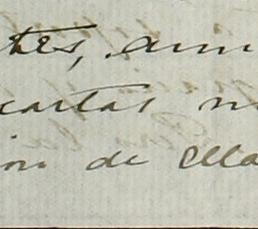 tes, aun
cartas m
ion de ella